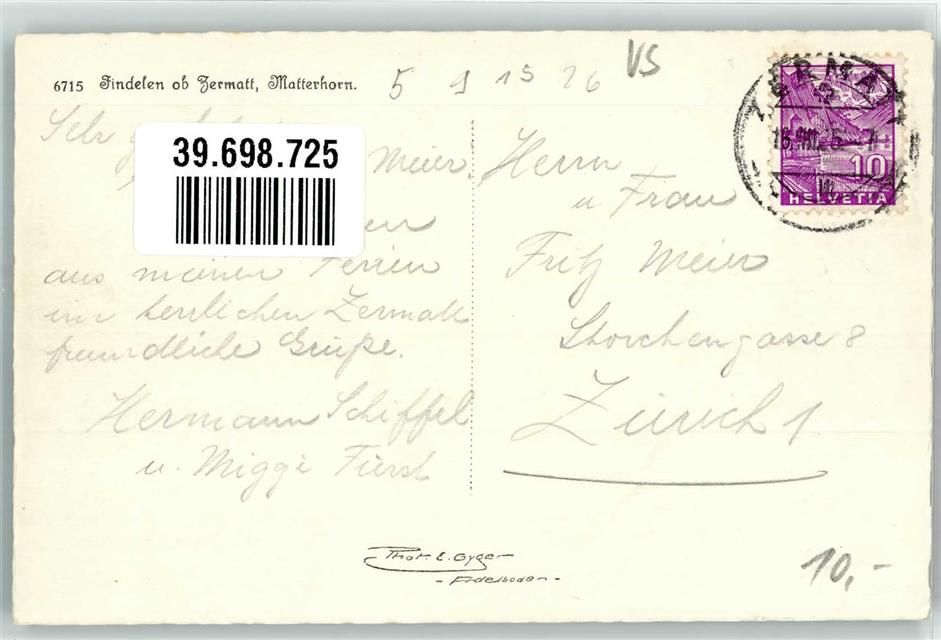 6715 Findelen ob Zermatt, Matterhorn.
5 9 15 26
VS
ZERMATT
10
HELVETIA
39.698.725
Sehr
Meier.
aus meinen Ferien
im herrlichen Zermatt
freundliche Grüße.
Hermann Schiffel
u. Miggi Fürst
Herrn
u Frau
Fritz Meier
Storchengasse 8
Zürich 1
Phot. E. Gyger
- Adelboden -
10,-